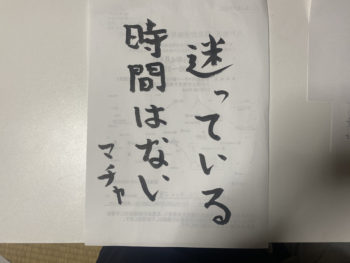 迷っている
時間はない
マチャ